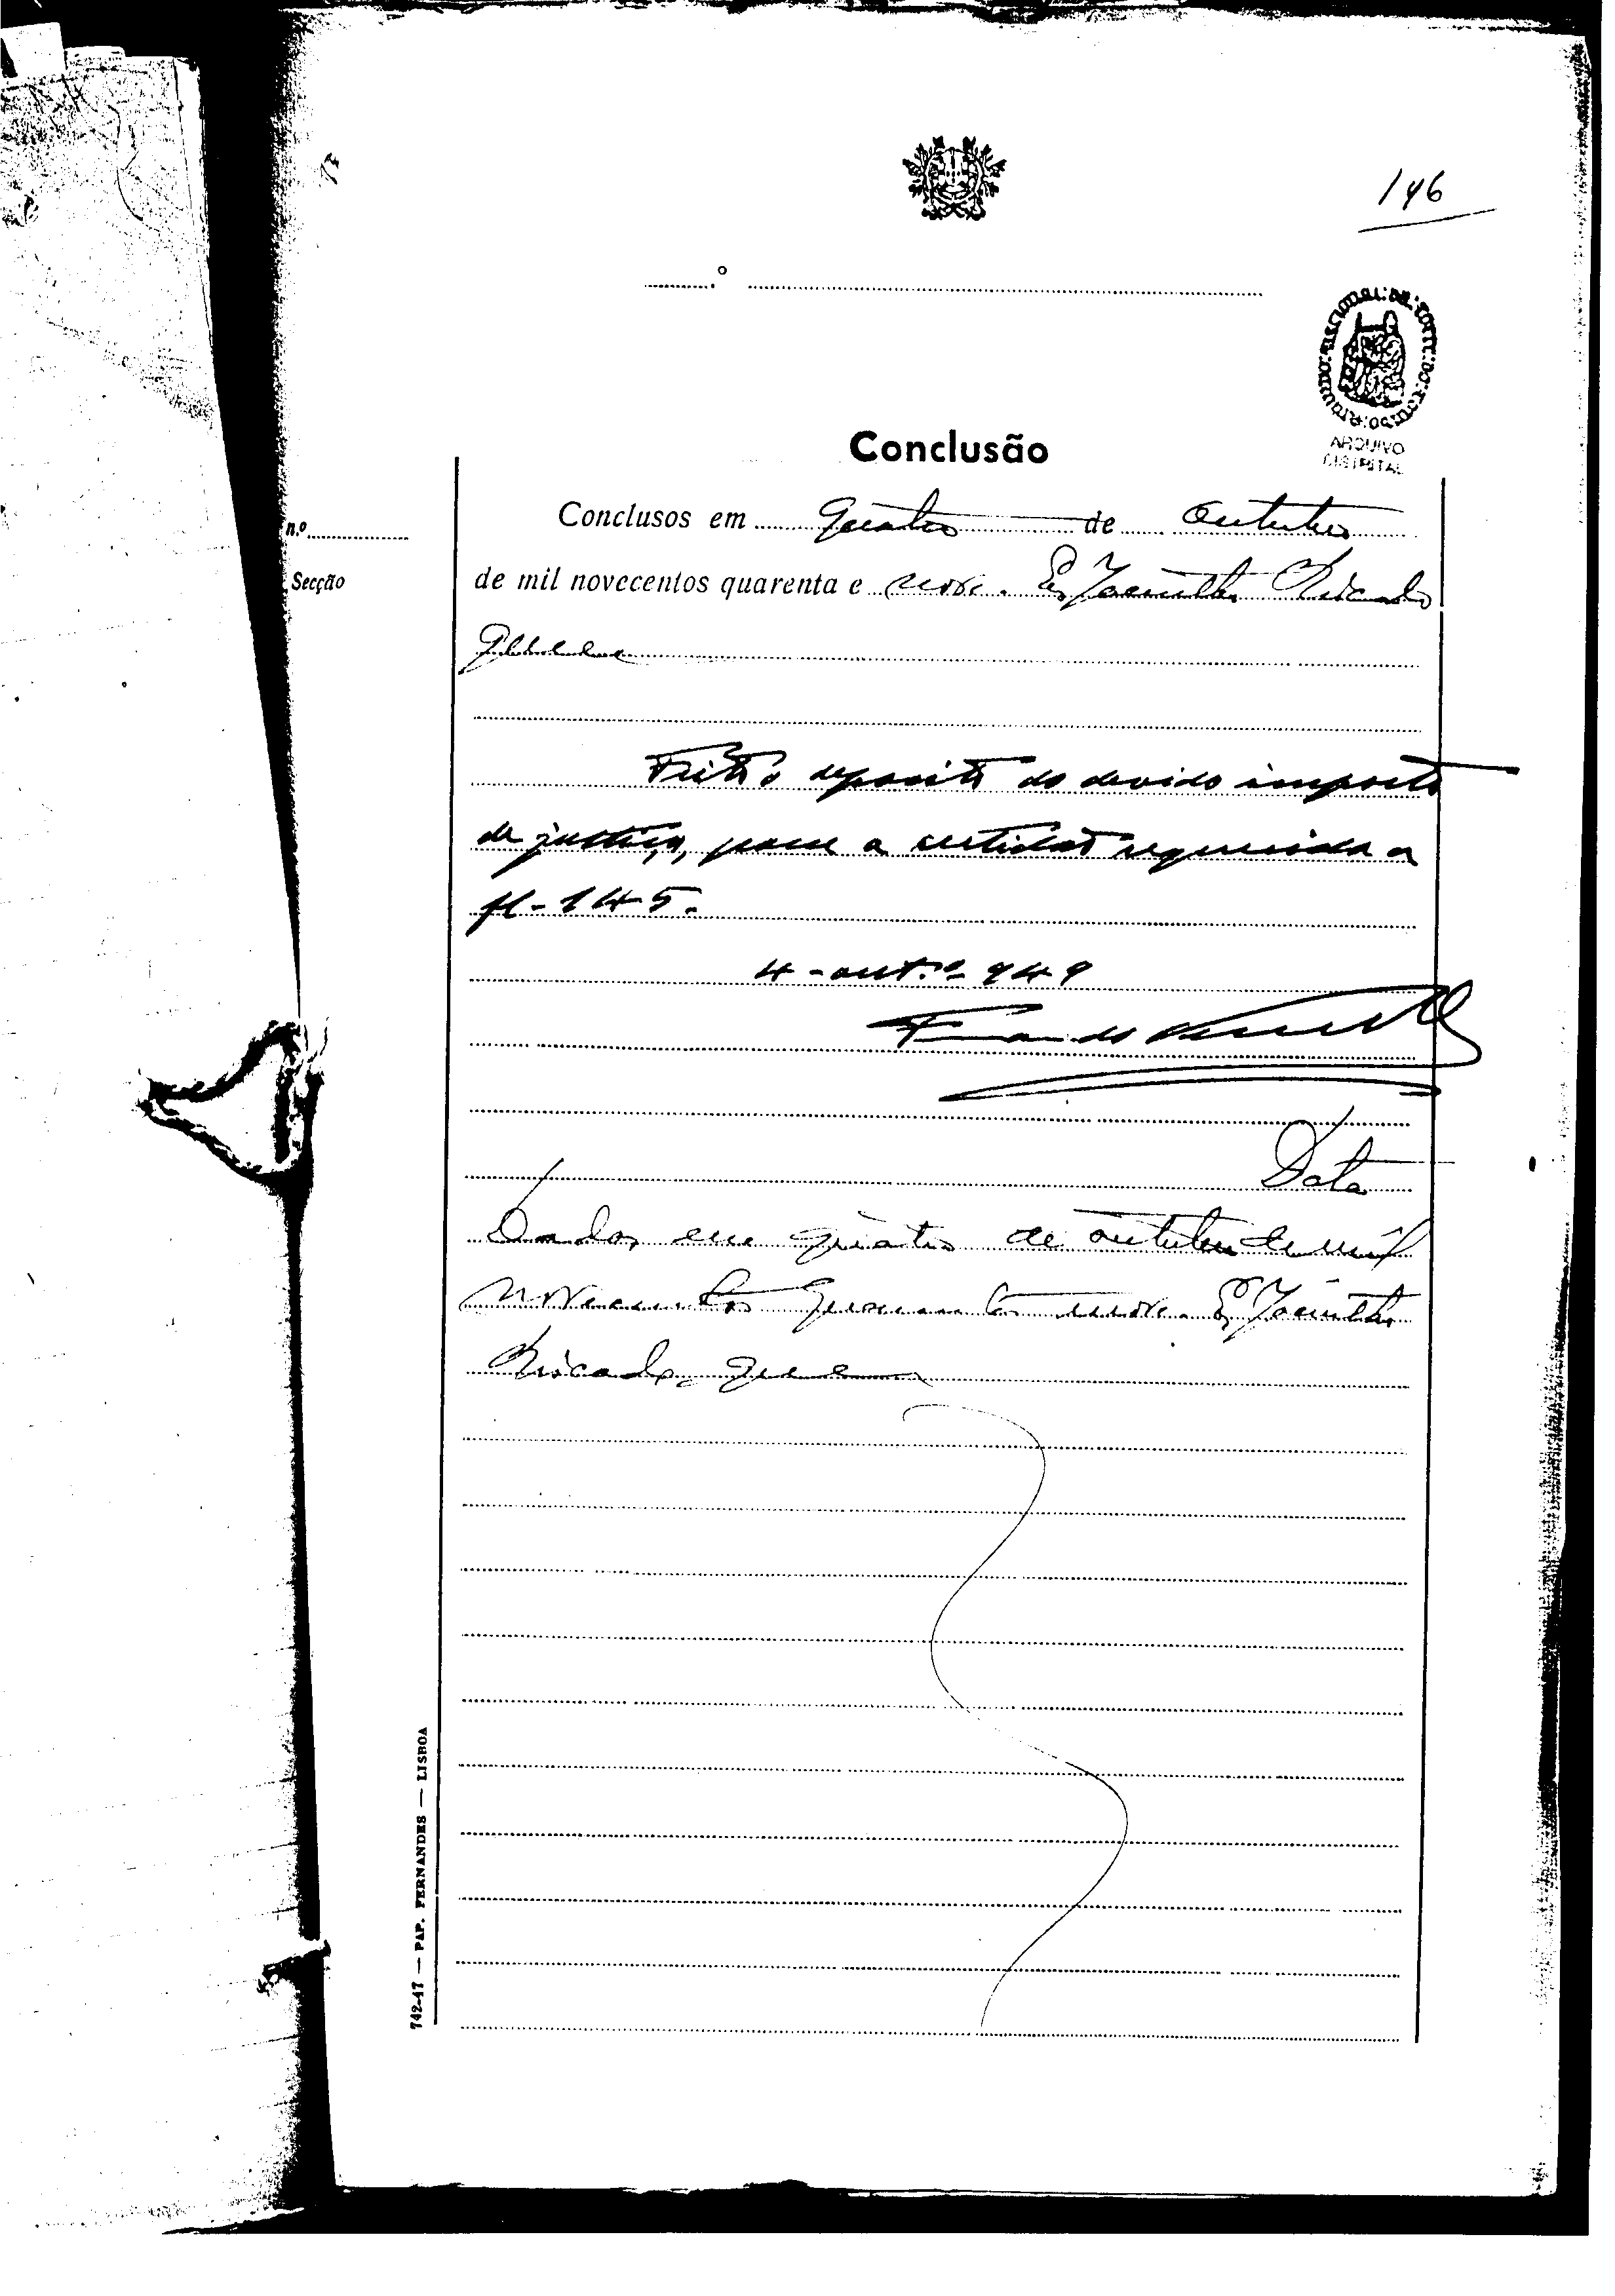 146
ARQUIVO
DISTRITAL
Conclusão
n.º
Secção
Conclusos em quatro de Outubro
de mil novecentos quarenta e nove. E, Jacintho Ricardo
Feito o deposito do devido imposto
de justiça, passe a certidão requerida a
fl-145.
4-out.º-949
Data
Dados em quatro de outubro de mil
novecentos quarenta nove. E, Jacintho
Ricardo
742-47 — PAP. FERNANDES — LISBOA